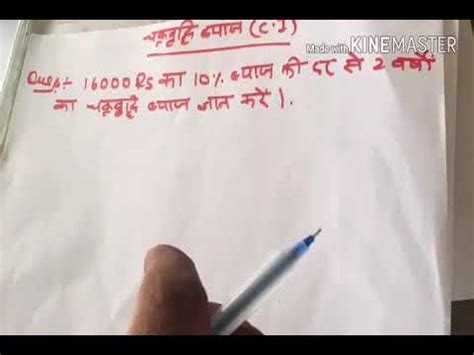 चक्रवृद्धि ब्याज (C.I)
Made with KINEMASTER
Ques:- 16000 RS का 10% ब्याज की दर से 2 वर्षों
का चक्रवृद्धि ब्याज ज्ञात करें ।